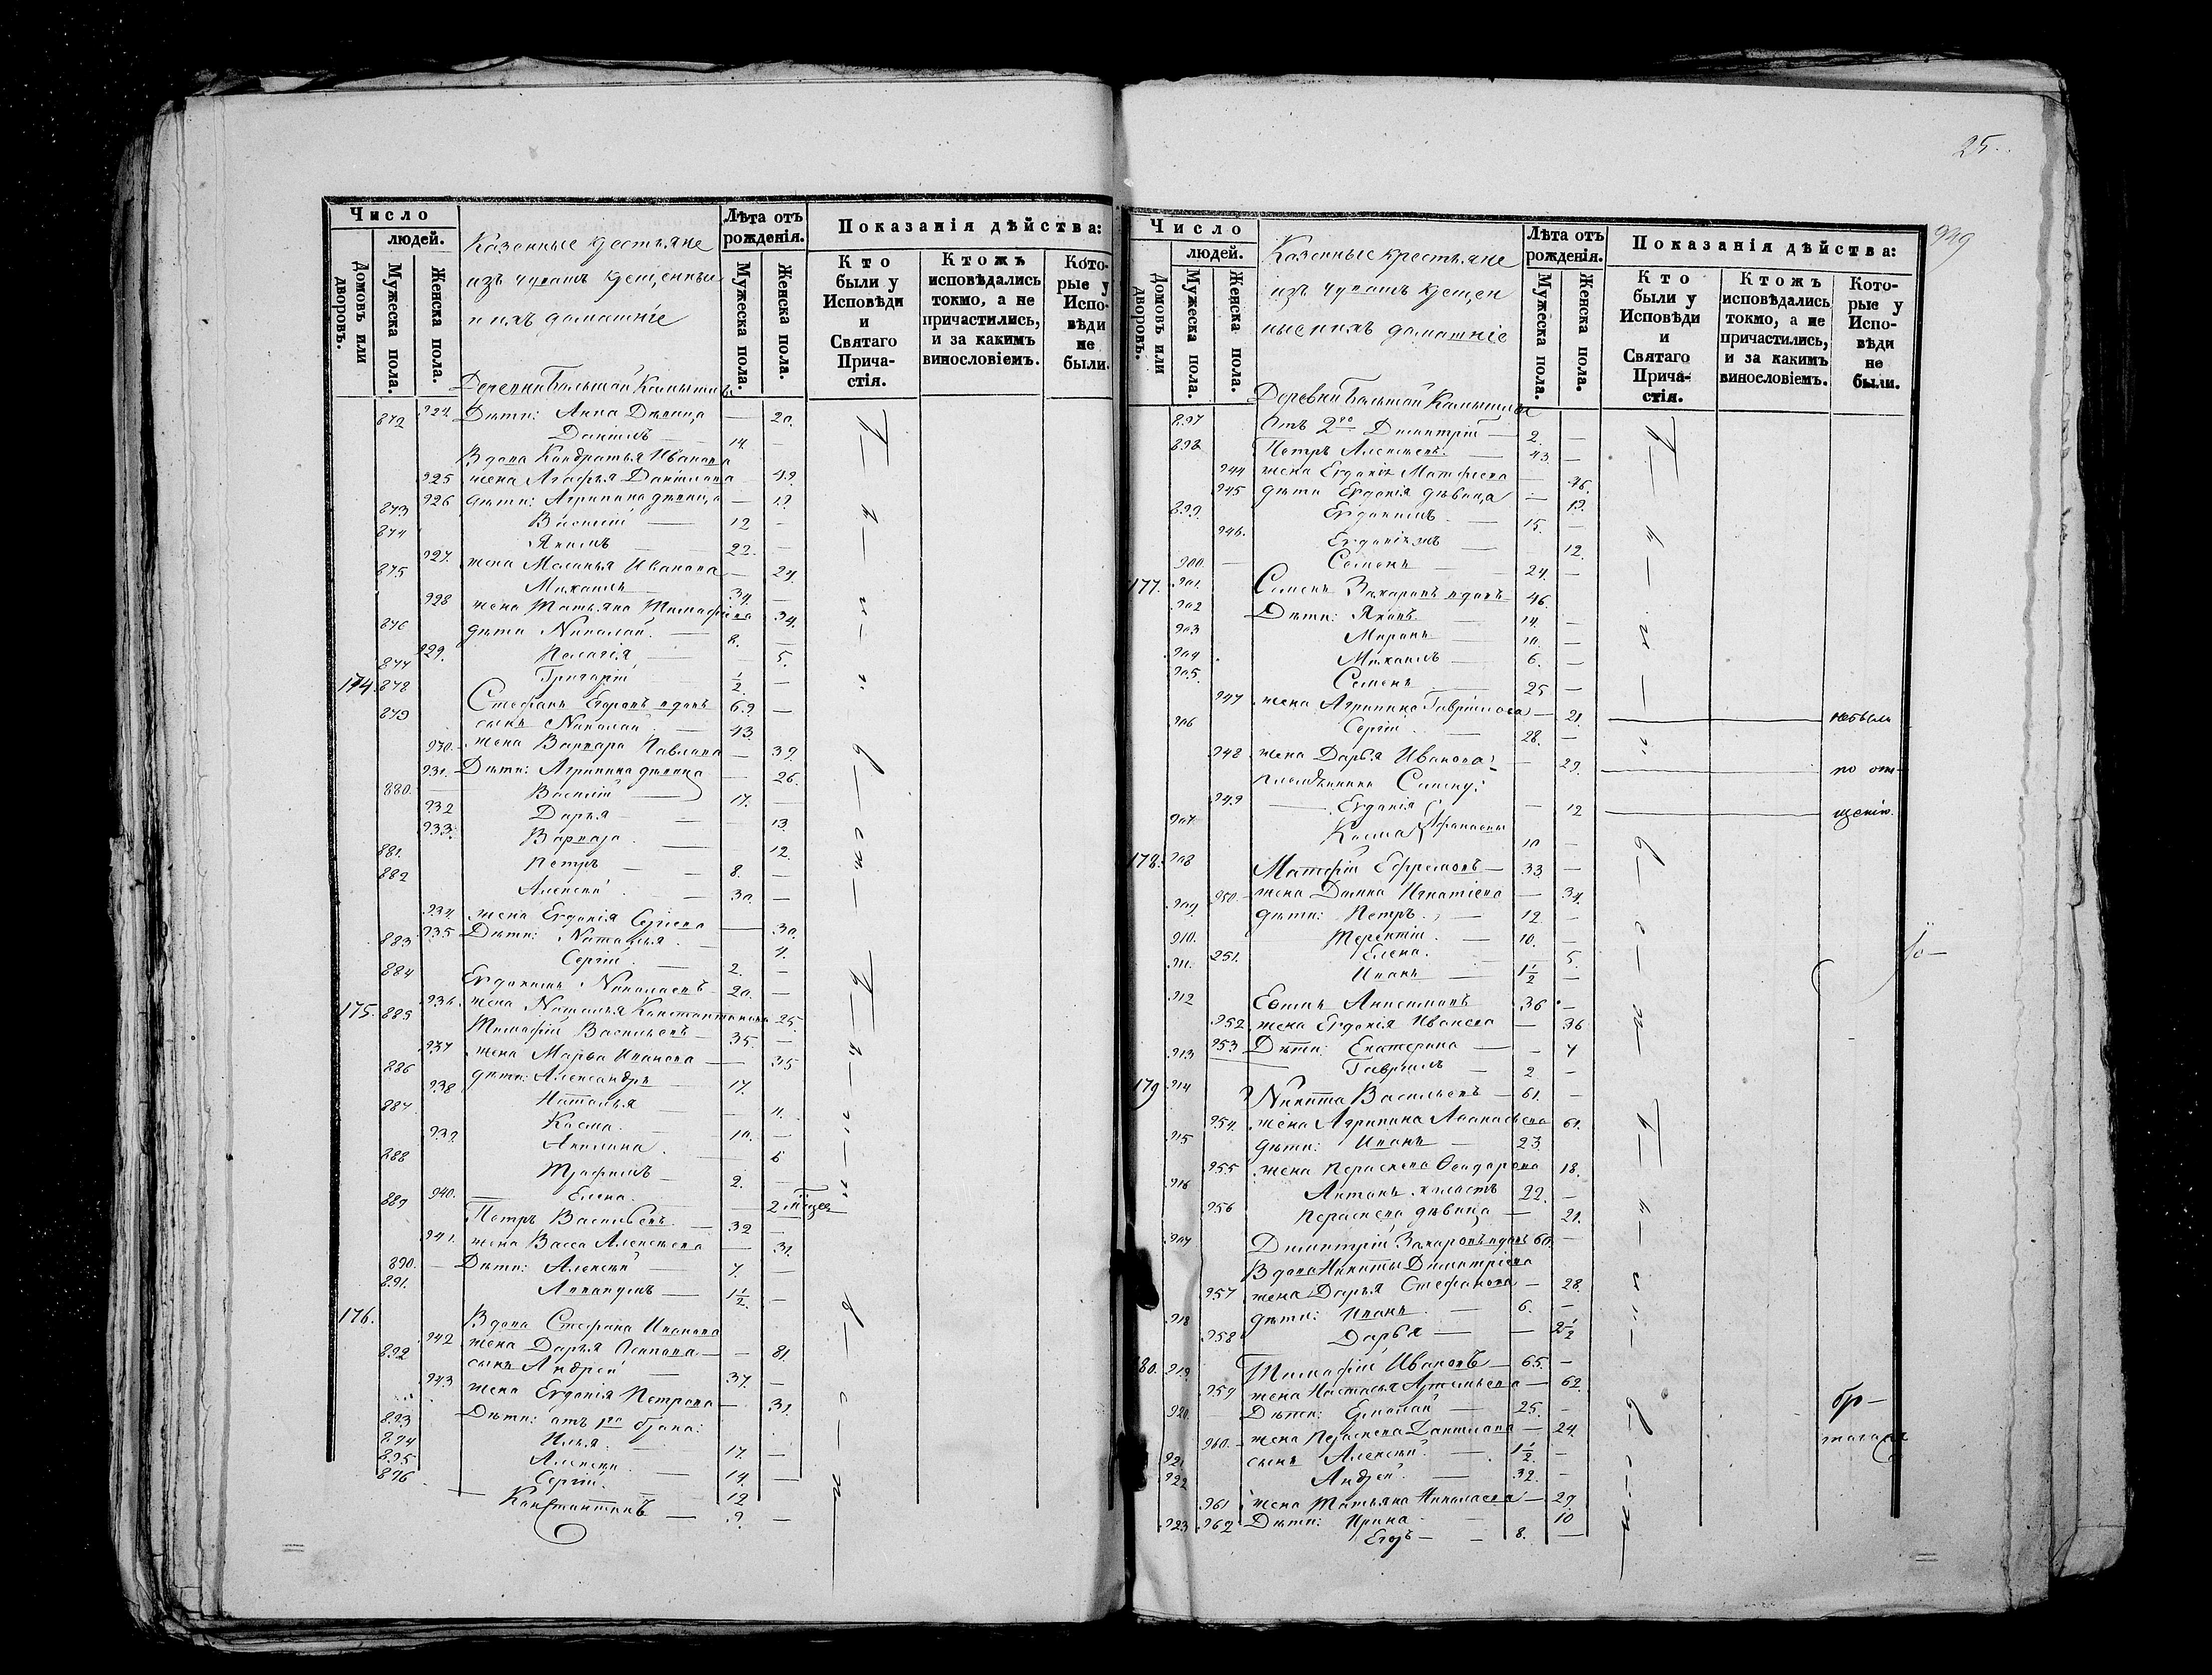 Число
людей.
Домовъ или дворовъ.
Мужеска пола.
Женска пола.
Казенные крестьяне
изъ чувашъ крещенные
и ихъ домашніе
Лѣта отъ рожденія.
Мужеска пола.
Женска пола.
Показанія дѣйства:
Кто были у Исповѣди и Святаго Прича-стія.
Ктожъ исповѣдались токмо, а не причастились, и за какимъ винословіемъ.
Кото-рые у Испо-вѣди не были.
Деревни Большой
924 Дѣти: Анна Дѣвица — 20.
872 Даніилъ — 14. —
Вдова Кондратья Иванова
925 жена Агафья Данилова — 49.
926 дѣти: Агрипина дѣвица — 19.
873 Василій — 12 —
874 Якимъ — 22. —
927. жена Меланья Иванова — 24.
875 Михаилъ 34. —
928 жена Татьяна Тимофѣева 34.
876 дѣти Николай. — 8. —
929. Пелагія — 5.
877 Григорій 1/2. —
174. 878 Стефанъ Егоровъ вдовъ 69. —
879 сынъ Николай — 43. —
930. жена Варвара Павлова — 39.
931. Дѣти: Агрипина дѣвица — 26.
880. Василій — 17. —
932 Дарья — 13.
933. Варвара — 12.
881. Петръ — 8. —
882 Алексѣй — 30. —
934. жена Евдокія Сергіева — 30.
935 Дѣти: Наталья — 4.
883 Сергій — 2. —
884 Евдокимъ Николаевъ 20. —
936. жена Наталья Константинова 25.
175. 885 Тимофей Васильевъ — 35. —
937 жена Марья Иванова — 35
886 дѣти: Александръ 17.
938 Наталья — 11.
887 Косма — 10. —
939. Акилина — 6
888 Трофимъ — 2. —
940. Елена — 2 мѣсяцев
889 Петръ Васильевъ — 32 —
941. жена Васса Алексѣева — 31.
890. — Дѣти: Алексѣй — 7. —
891. — 1 1/2. —
176. Вдова Стефана Иванова
942 жена Дарья — 81.
892 сынъ Андрей — 37. —
943 жена Евдокія Петрова — 31.
Дѣти: отъ 1го брака:
893 Илья — 17. —
894 Алексѣй — 14. —
895 Сергій — 12
896 Константинъ — 9. —
25.
929
Число
людей.
Домовъ или дворовъ.
Мужеска пола.
Женска пола.
Казенные крестьяне
изъ чувашъ крещен
ные и ихъ домашніе
Лѣта отъ рожденія.
Мужеска пола.
Женска пола.
Показанія дѣйства:
Кто были у Исповѣди и Святаго Прича-стія.
Ктожъ исповѣдались токмо, а не причастились, и за какимъ винословіемъ.
Кото-рые у Испо-вѣди не были.
Деревни Большой
897 Отъ 2го Димитрій — 2. —
898 Петръ Алексѣевъ — 43. —
944 жена Евдокія Матфіева — 46.
945 дѣти Евдокія дѣвица — 19.
899. Евдокимъ — 15. —
946. — 12.
900. Семенъ — 24. —
177. 901. Семенъ Захаровъ вдовъ 46. —
902 Дѣти: Яковъ 14. —
903 Миронъ — 10. —
904 Михаилъ — 6. —
905. Семенъ 25 —
947 жена Агрипина Гавріилова — 21. — небыли
906 Сергій — 28. —
948 жена Дарья Иванова — 29. — по отл-
племянники Симену:
949 Евдокія — 12 — щенію.
907 Косма Афанасьевы 10 —
178. 908 Матфій Ефремовъ — 33 —
950. жена Домна Игнатіева — 34.
909 дѣти: Петръ — 12 —
910. Терентій — 10. —
951. Елена — 5.
911. Иванъ — 1 1/2 —
912 Евтихъ Анисимовъ 36 —
952 жена Евдокія Иванова — 36
953 Дѣти: Екатерина — 7
913 Гавріилъ — 2 —
179 914 Никита Васильевъ — 61. —
954. жена Агрипина Аѳанасьева 61.
915 дѣти: Иванъ — 23
955 жена Параскева Ѳеодорова 18.
916 Антонъ холостъ 22. —
956 Параскева дѣвица — 21.
917 Димитрій Захаровъ вдовъ 60. —
Вдова Никиты Димитріева
957 жена Дарья Стефанова — 28.
918 дѣти: Иванъ — 6. —
958 Дарья — 2 1/2
180. 919. Тимофій Ивановъ — 65. —
959 жена Настасья Артемьева — 62.
920. Дѣти: Ермолай — 25. —
960. жена Параскева Данилова — 24.
921 сынъ Алексѣй — 1 1/2. —
922 Андрей — 32. —
961 жена Татьяна Николаева — 29.
962 Дѣти: Ирина 10
923 Егоръ — 8. —